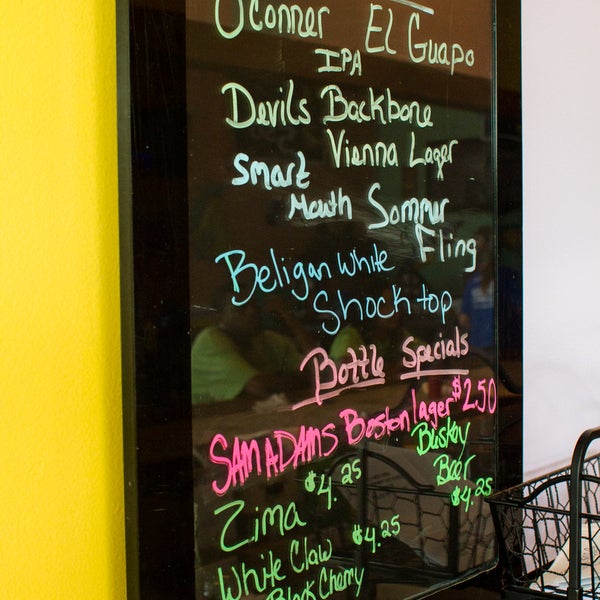 O'Conner El Guapo
IPA
Devils Backbone
Vienna Lager
Smart
Mouth Sommer
Fling
Beligan White
Shock top
Bottle Specials
SAM ADAMS Boston lager $2.50
Buskoy
Beer
$4.25
Zima $4.25
White Claw $4.25
Black Cherry